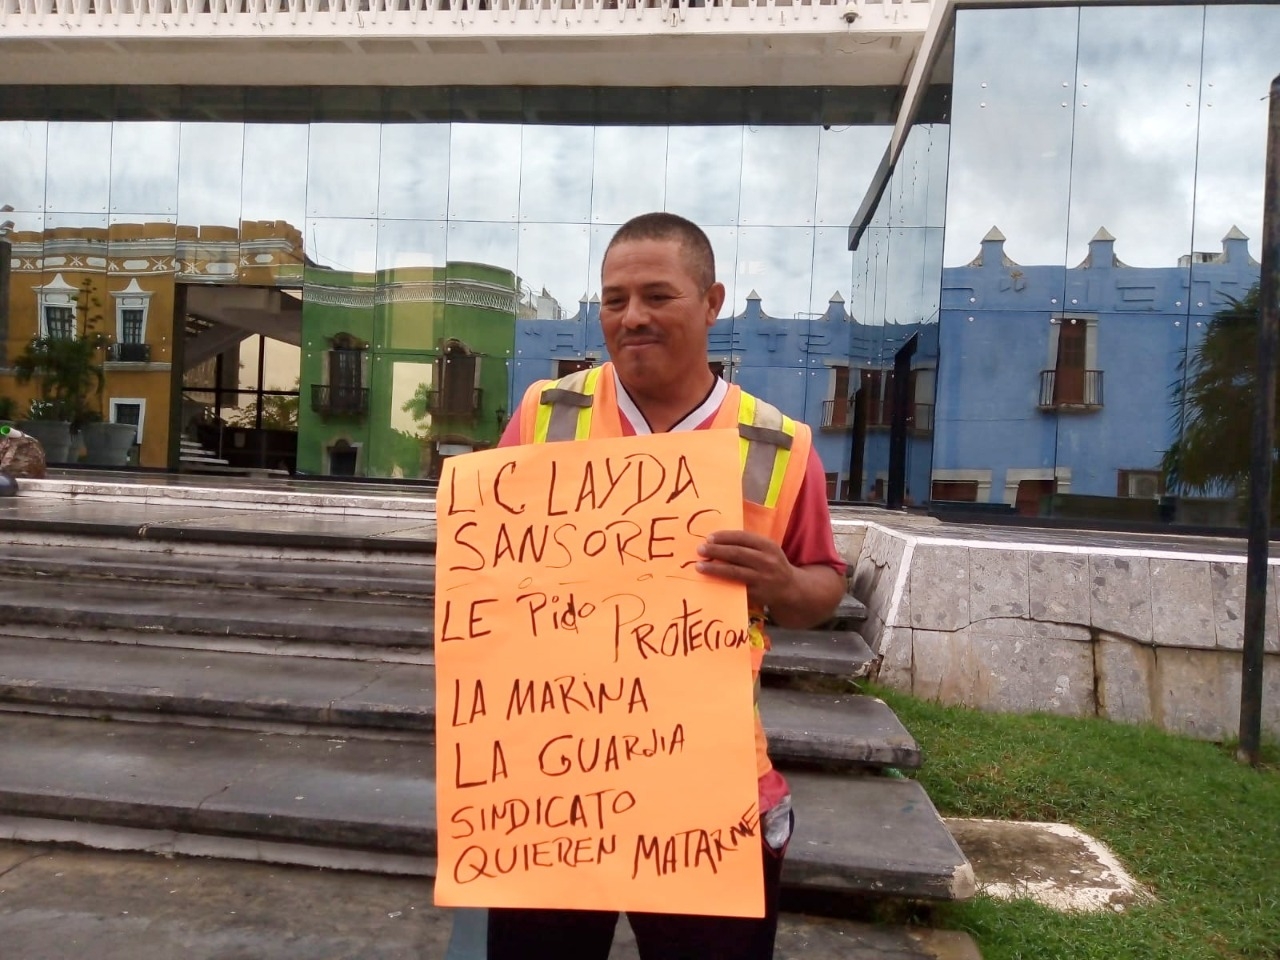 LIC LAYDA
SANSORES
LE PIDO PROTECION
LA MARINA
LA GUARDIA
SINDICATO
QUIEREN MATARME